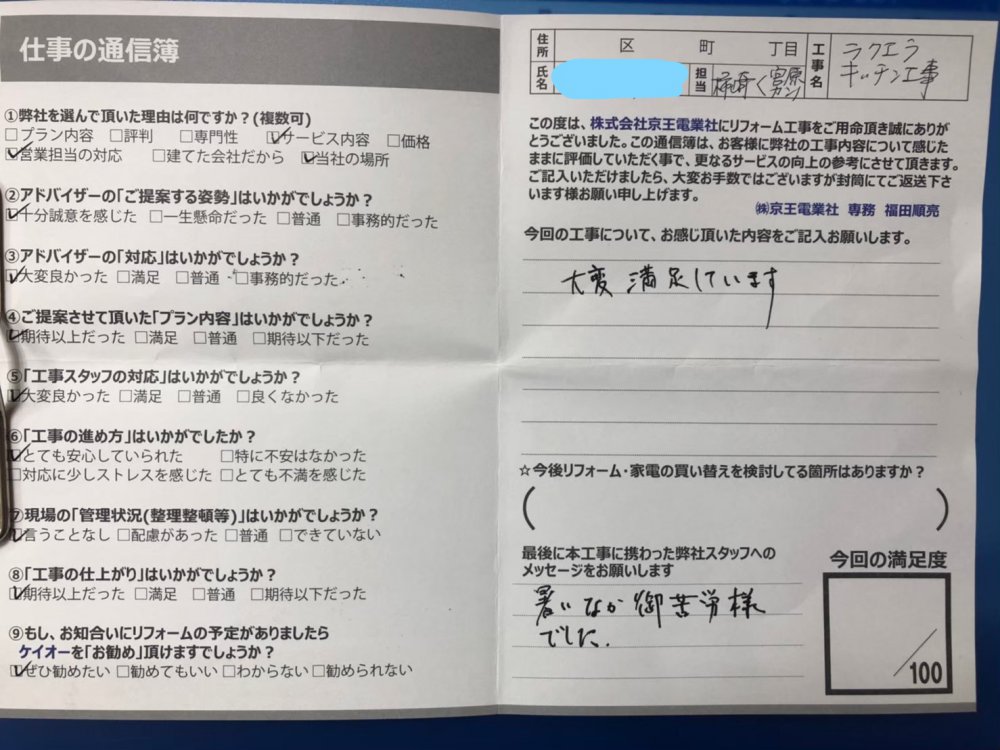 仕事の通信簿
①弊社を選んで頂いた理由は何ですか?(複数可)
□プラン内容 □評判 □専門性 ☑サービス内容 □価格
☑営業担当の対応 □建てた会社だから ☑当社の場所
②アドバイザーの「ご提案する姿勢」はいかがでしょうか?
☑十分誠意を感じた □一生懸命だった □普通 □事務的だった
③アドバイザーの「対応」はいかがでしょうか?
☑大変良かった □満足 □普通 □事務的だった
④ご提案させて頂いた「プラン内容」はいかがでしょうか?
☑期待以上だった □満足 □普通 □期待以下だった
⑤「工事スタッフの対応」はいかがでしょうか?
☑大変良かった □満足 □普通 □良くなかった
⑥「工事の進め方」はいかがでしたか?
☑とても安心していられた □特に不安はなかった
□対応に少しストレスを感じた □とても不満を感じた
⑦現場の「管理状況(整理整頓等)」はいかがでしょうか?
☑言うことなし □配慮があった □普通 □できていない
⑧「工事の仕上がり」はいかがでしょうか?
☑期待以上だった □満足 □普通 □期待以下だった
⑨もし、お知合いにリフォームの予定がありましたら
ケイオーを「お勧め」頂けますでしょうか?
☑ぜひ勧めたい □勧めてもいい □わからない □勧められない
住所 区 町 丁目
氏名 担当 宮原
工事名 ラクエラ
キッチン工事
この度は、株式会社京王電業社にリフォーム工事をご用命頂き誠にありが
とうございました。この通信簿は、お客様に弊社の工事内容について感じた
ままに評価していただく事で、更なるサービスの向上の参考にさせて頂きます。
ご記入いただけましたら、大変お手数ではございますが封筒にてご返送下さ
います様お願い申し上げます。
㈱京王電業社 専務 福田順亮
今回の工事について、お感じ頂いた内容をご記入お願いします。
大変満足しています
☆今後リフォーム・家電の買い替えを検討してる箇所はありますか?
( )
最後に本工事に携わった弊社スタッフへの
メッセージをお願いします
暑いなか御苦労様
でした.
今回の満足度
/100